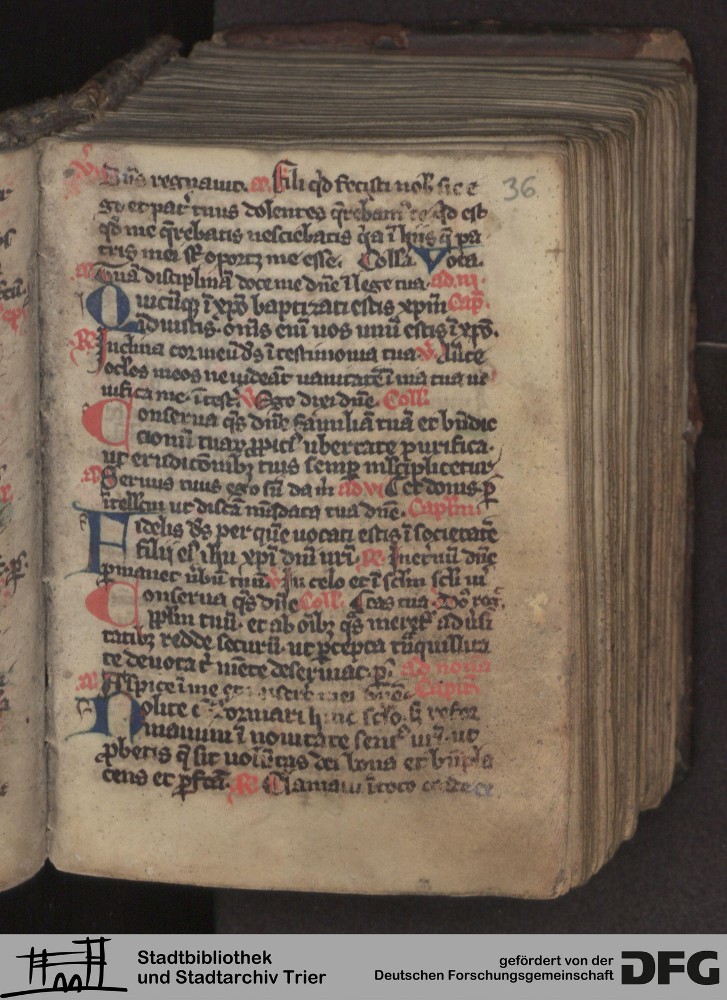 Dn̄s regnauit. a Fili qd̄ fecisti nob̄ sic e
go et pat̄ tuus dolentes q̄rebamꝰ te qd̄ est
qd̄ me q̄rebatis nesciebatis q̄a ī hiis q̄ pa
tris mei st̄ oportꝫ me esse. Coll̄a Vota.
Viā disciplinā doce me dn̄e ī lege tua. ad .iii.
Quicūqꝫ ī xp̄o baptizati estis xpm̄ Cap̄.
iduistis. om̄s enī uos unū estis ī xp̄o.
R Inclina cor meū ds̄ ī testimonia tua
oc̄los meos ne uideāt uanitatē ī uia tua ui
uifica me. ī test. V Ego dixi dn̄e. Coll.
Conserua qs̄ dn̄e familiā tuā et bn̄dic
cionū tuaꝝ ꝓpiciꝰ ubertate purifica.
ut erudicōnibꝫ tuis semꝑ multiplicetur
a Seruus tuus ego sū da m̄ ad vi et donis. ꝑ
ītellcm̄ ut discā mādata tua dn̄e. Capl̄m
Fidelis ds̄ per quē uocati estis ī societatē
filii eiꝰ ih̄u xp̄i dn̄i nr̄i. R In et̄nū dn̄e
ꝑmanet u̇bū tuū V In celo et ī sclm̄ scl̄i
Conserua qs̄ dn̄e Coll.
pp̄lm tuū. et ab oībꝫ qs̄
tatibꝫ redde securū. ut ꝑcepta tᷓquillita
te deuota t̄ mēte deseruiat. ꝑ. ad nonā
a Aspice ī me et miserere mei dn̄e. Capit̄
Nolite ꝯformari huic sc̄lo. sꝫ refor
mamini ī nouitate sensꝰ ur̄i. ut
ꝓbetis q̄ sit uolūtas dei bona et bn̄pla
cens et ꝑfc̄ā. R Clamaui ī toto corde
36
Stadtbibliothek
und Stadtarchiv Trier
gefördert von der
Deutschen Forschungsgemeinschaft
DFG